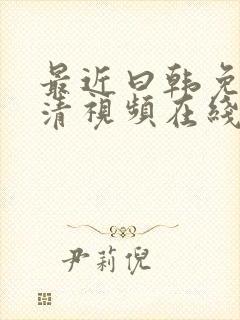 最近曰韩免
清視頻在綫
尹莉倪